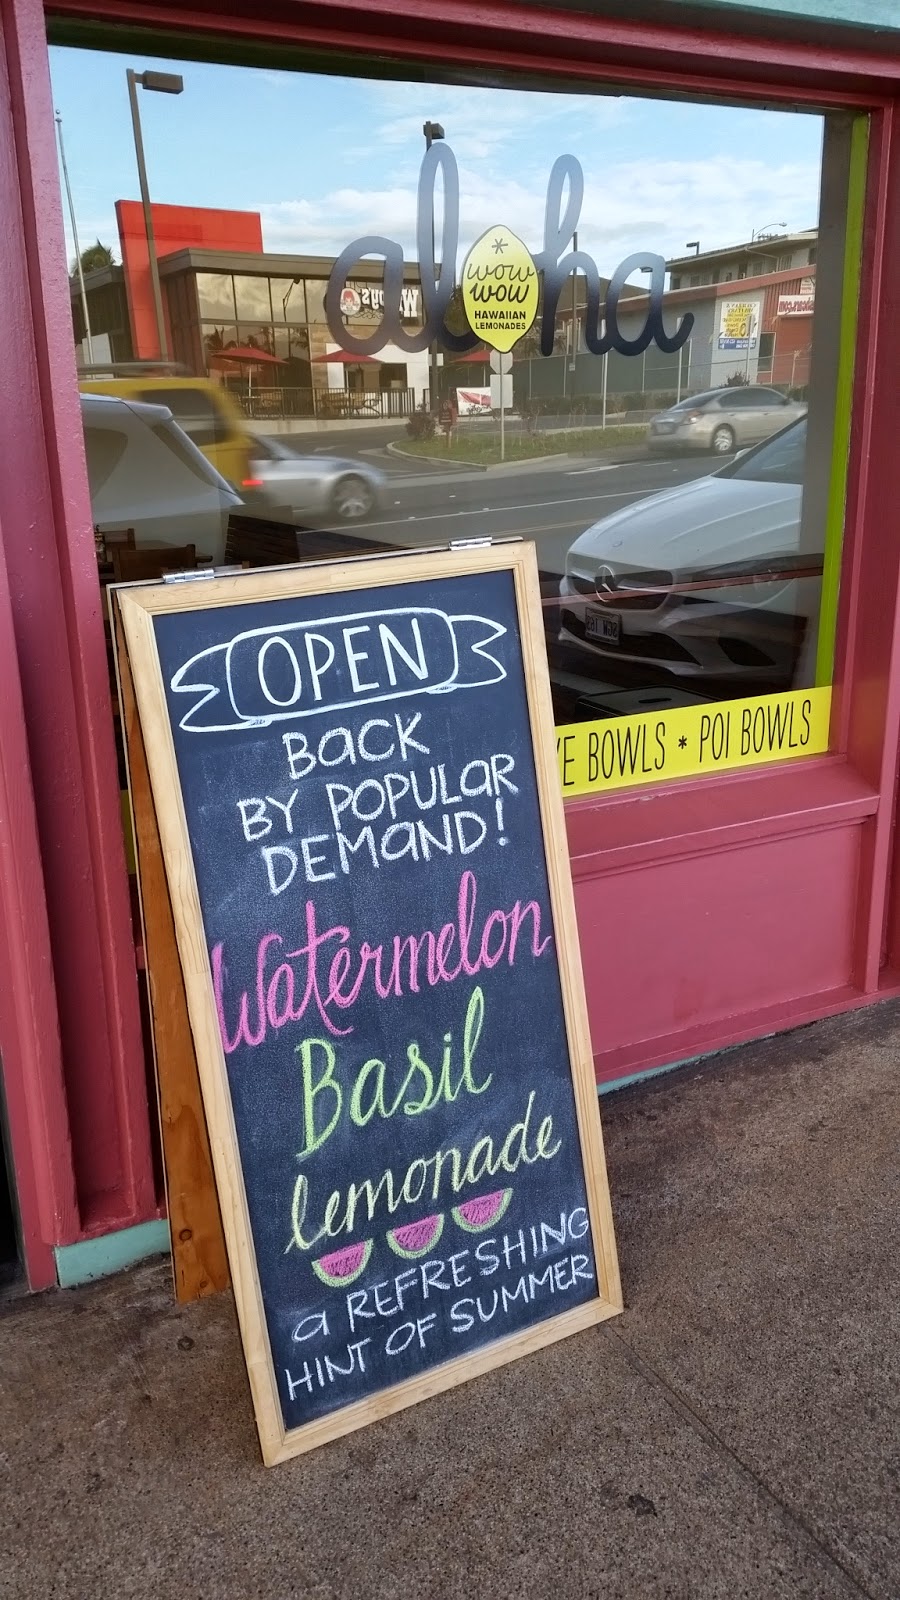 aloha
wow
wow
HAWAIIAN
LEMONADES
Wendy's
OPEN
BACK
BY POPULAR
DEMAND!
Watermelon
Basil
lemonade
a REFRESHING
HINT OF SUMMER
BOWLS * POI BOWLS